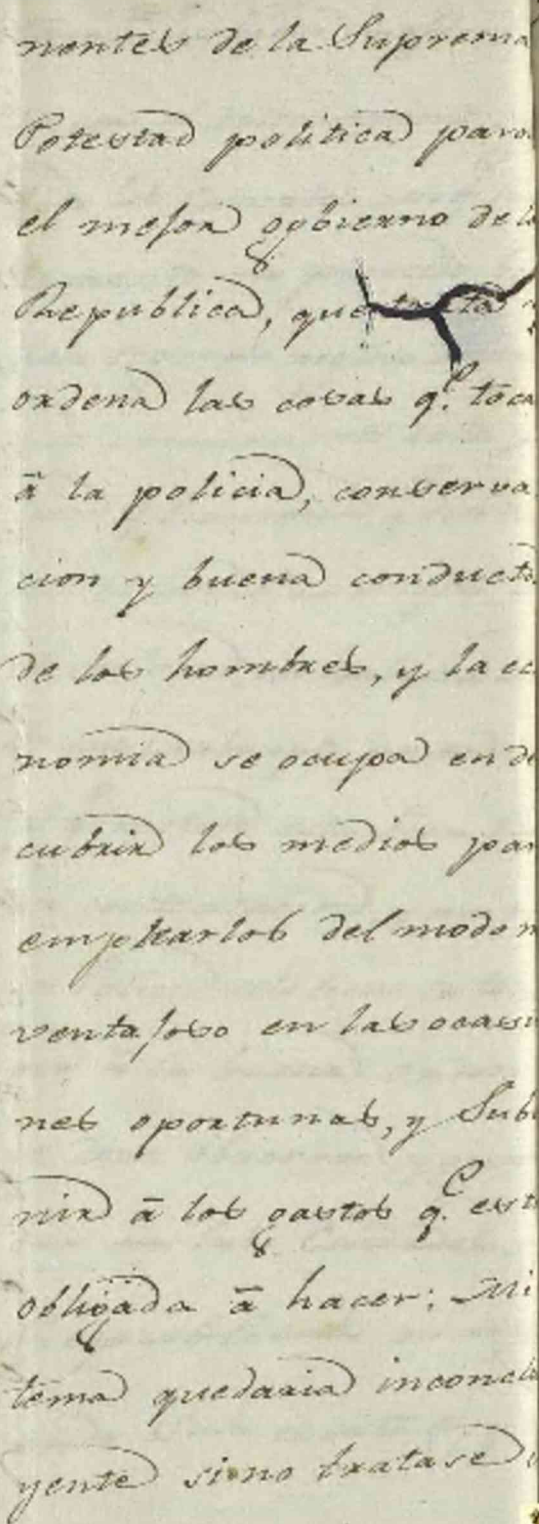 nentes de la Suprema
Potestad politica para
el mejor gobierno de la
Republica, que trata
ordena las cosas q.e toca
â la policia, conserva
cion y buena conducta
de los hombres, y la ec
nomia se ocupa en de
cubrir los medios par
emplearlos del modo m
ventajoso en las ocasio
nes oportunas, y Sub
nir â los gastos q.e est
obligada â hacer: Mi
tema quedaria inconclu
yente sino tratase